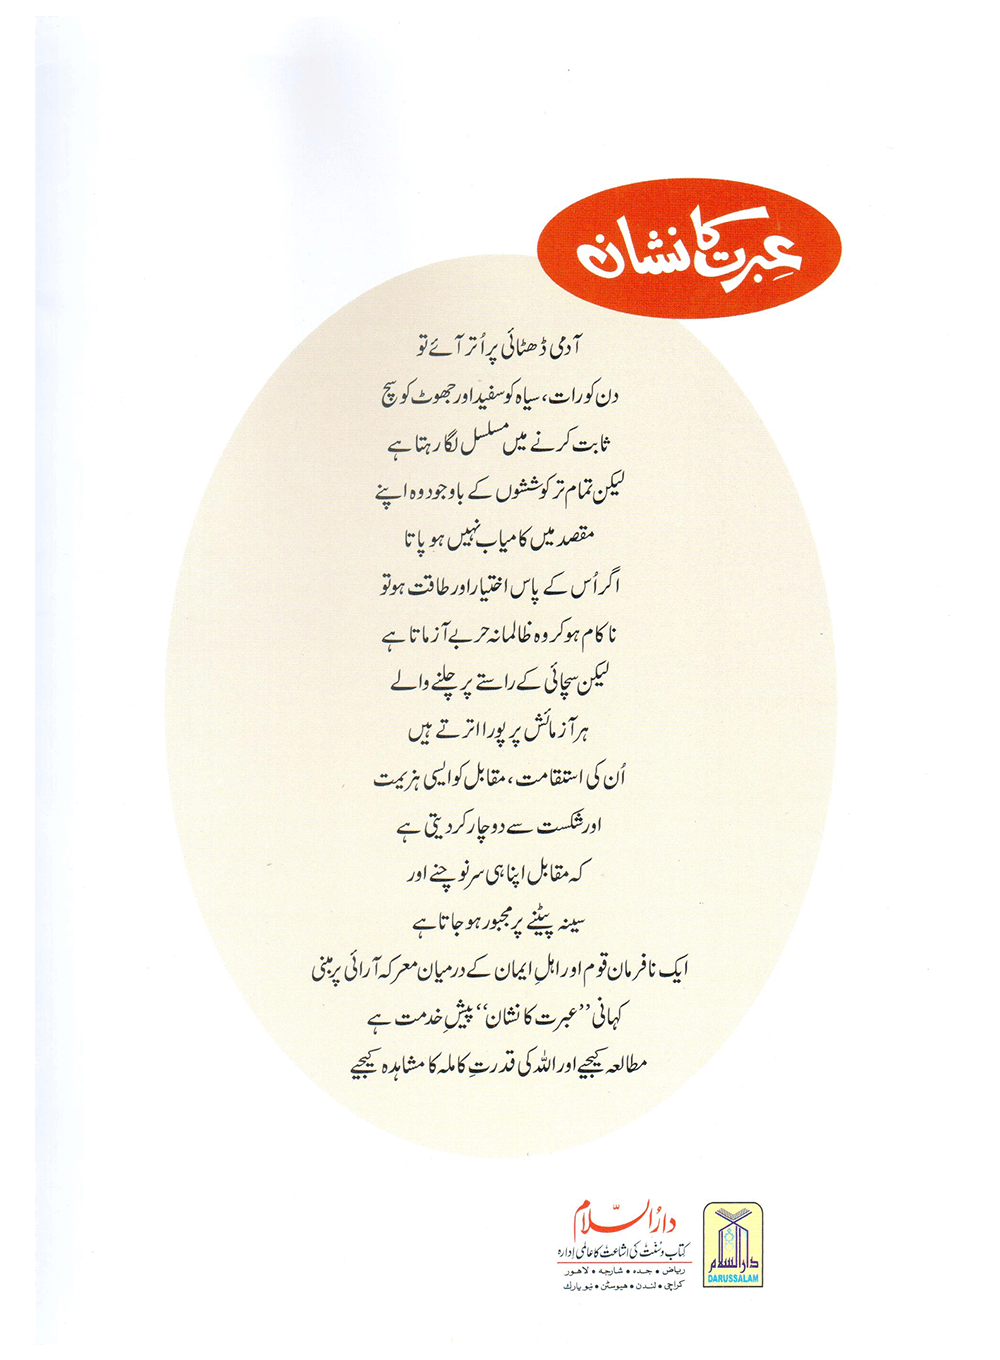 عبرت کا نشان
آدمی ڈھٹائی پر اُتر آئے تو
دن کو رات، سیاہ کو سفید اور جھوٹ کو سچ
ثابت کرنے میں مسلسل لگا رہتا ہے
لیکن تمام تر کوششوں کے باوجود وہ اپنے
مقصد میں کامیاب نہیں ہو پاتا
اگر اُس کے پاس اختیار اور طاقت ہو تو
ناکام ہو کر وہ ظالمانہ حربے آزماتا ہے
لیکن سچائی کے راستے پر چلنے والے
ہر آزمائش پر پورا اترتے ہیں
اُن کی استقامت، مقابل کو ایسی ہزیمت
اور شکست سے دوچار کر دیتی ہے
کہ مقابل اپنا ہی سر نوچنے اور
سینہ پیٹنے پر مجبور ہو جاتا ہے
ایک نافرمان قوم اور اہلِ ایمان کے درمیان معرکہ آرائی پر مبنی
کہانی ”عبرت کا نشان“ پیشِ خدمت ہے
مطالعہ کیجیے اور اللہ کی قدرتِ کاملہ کا مشاہدہ کیجیے
دارُالسّلام
کتاب و سُنّت کی اشاعت کا عالمی اِدارہ
ریاض • جدہ • شارجہ • لاہور
کراچی • لندن • ہیوسٹن • نیو یارک
دارالسلام
DARUSSALAM